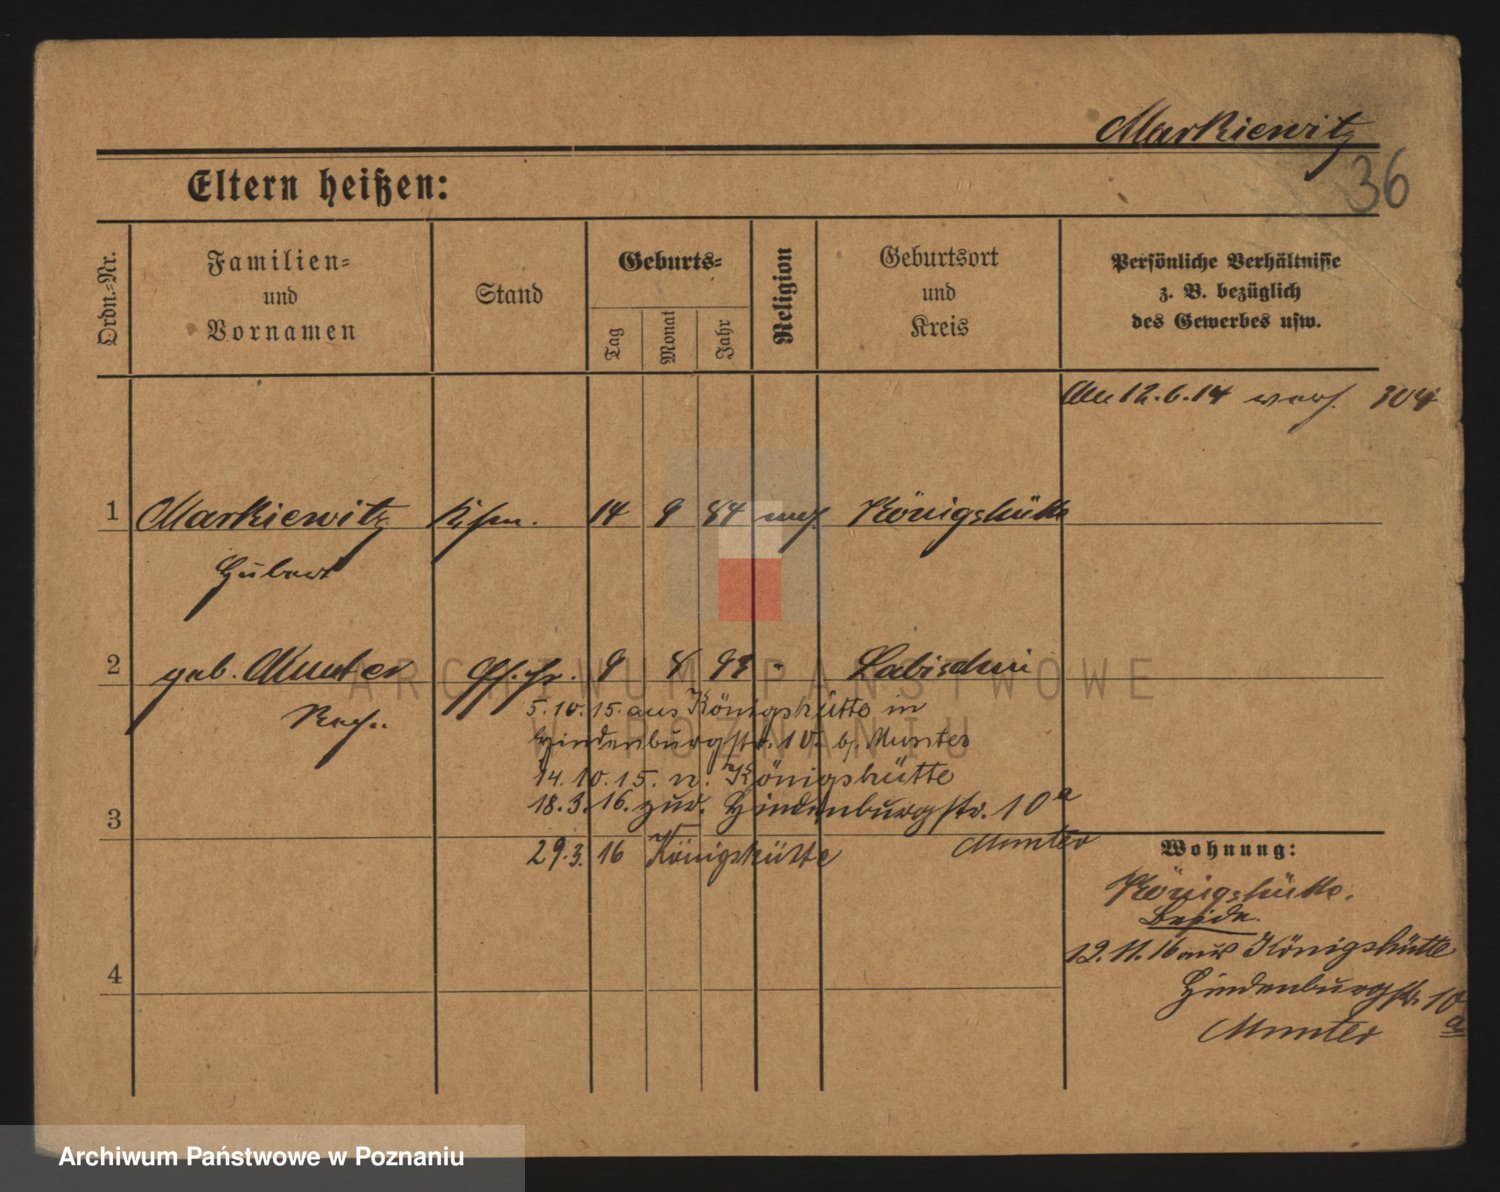 Markiewitz
36
Eltern heißen:
Ordn.-Nr.
Familien-
und
Vornamen
Stand
Geburts-
Tag
Monat
Jahr
Religion
Geburtsort
und
Kreis
Persönliche Verhältnisse
z. B. bezüglich
des Gewerbes usw.
12.6.14 304
1 Markiewitz Kfm. 14 9 84 mos. Königshütte
Hubert
2 geb. Munter Eh. fr. 9 8 93 " Labischin
5.10.15. aus Königshütte in
Hindenburgstr. 10 b/ Munter
14.10.15. n. Königshütte
18.3.16. zur. Hindenburgstr. 10a
Munter
3
29.3.16 Königshütte
Wohnung:
Königshütte.
Beide.
12.11.16 aus Königshütte
Hindenburgstr. 10
a
Munter
4
ARCHIWUM PAŃSTWOWE
W POZNANIU
Archiwum Państwowe w Poznaniu